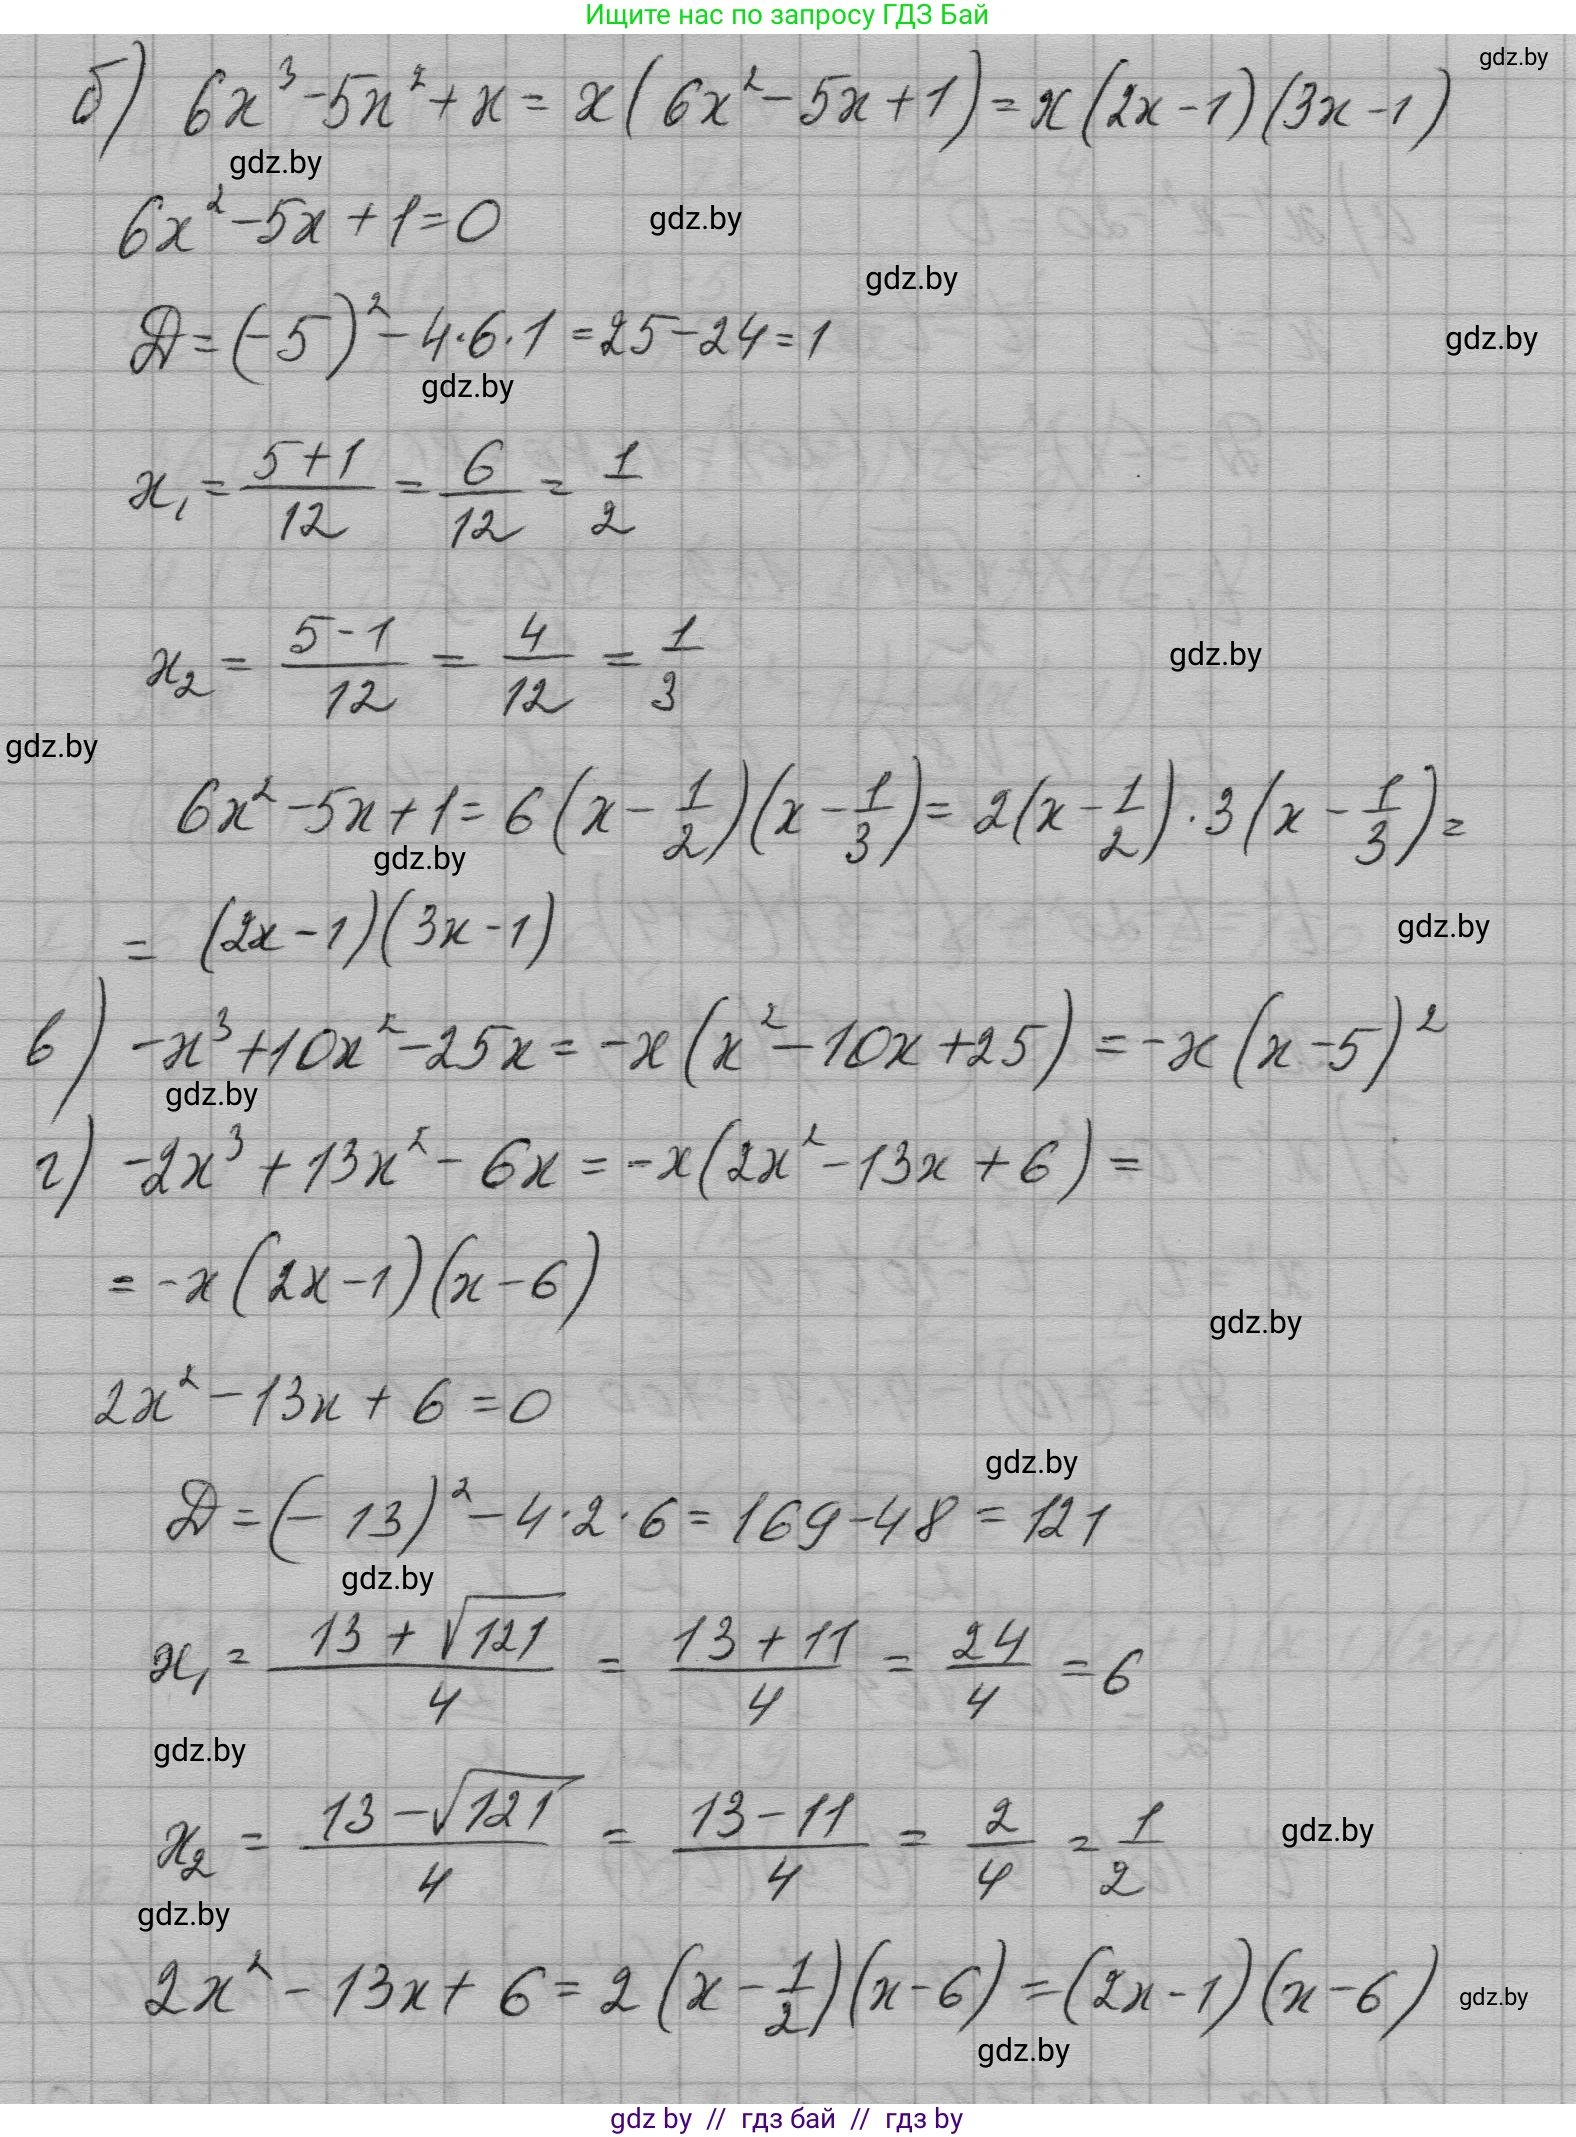 Ищите нас по запросу ГДЗ Бай
gdz.by
б) 6x³ - 5x² + x = x(6x² - 5x + 1) = x(2x - 1)(3x - 1)
gdz.by
6x² - 5x + 1 = 0
gdz.by
gdz.by
Д = (-5)² - 4·6·1 = 25 - 24 = 1
gdz.by
gdz.by
x₁ = (5+1)/12 = 6/12 = 1/2
x₂ = (5-1)/12 = 4/12 = 1/3
gdz.by
gdz.by
6x² - 5x + 1 = 6(x - 1/2)(x - 1/3) = 2(x - 1/2)·3(x - 1/3) =
gdz.by
= (2x - 1)(3x - 1)
gdz.by
в) -x³ + 10x² - 25x = -x(x² - 10x + 25) = -x(x - 5)²
gdz.by
г) -2x³ + 13x² - 6x = -x(2x² - 13x + 6) =
= -x(2x - 1)(x - 6)
gdz.by
2x² - 13x + 6 = 0
gdz.by
Д = (-13)² - 4·2·6 = 169 - 48 = 121
gdz.by
x₁ = (13 + √121)/4 = (13 + 11)/4 = 24/4 = 6
gdz.by
x₂ = (13 - √121)/4 = (13 - 11)/4 = 2/4 = 1/2
gdz.by
gdz.by
2x² - 13x + 6 = 2(x - 1/2)(x - 6) = (2x - 1)(x - 6)
gdz.by
gdz.by
gdz by // гдз бай // гдз by